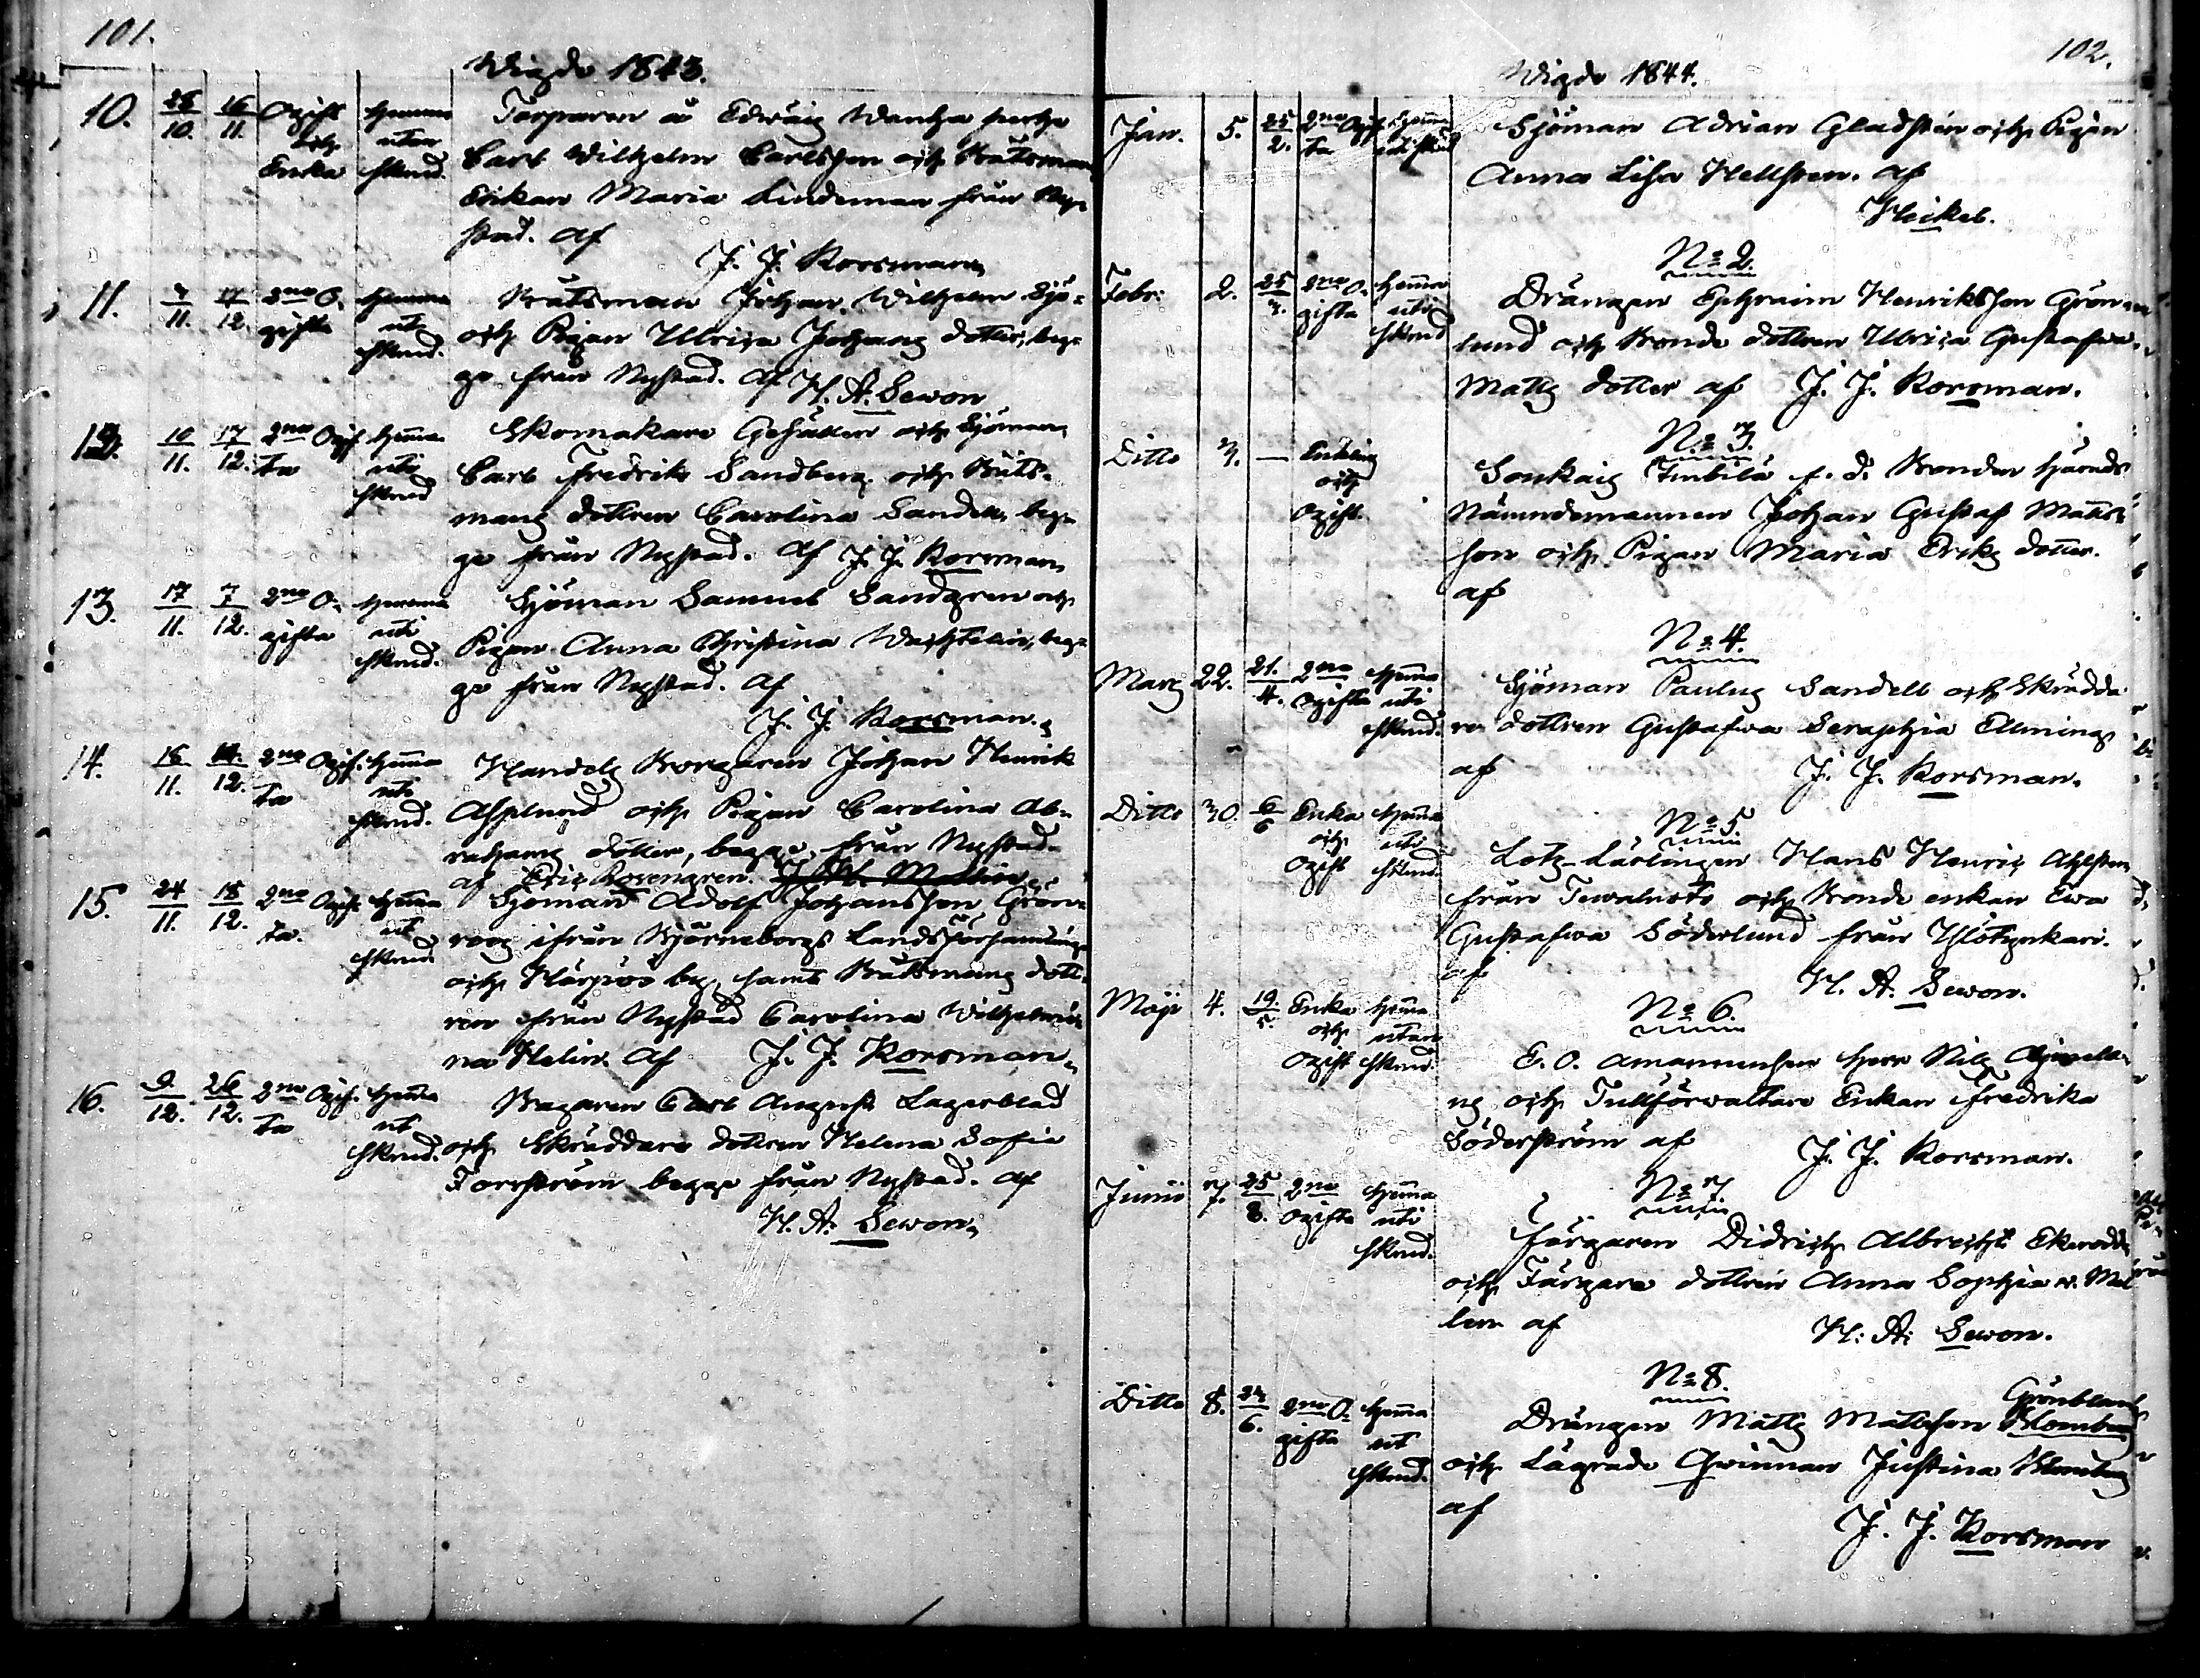 101.
Wigde 1843.
10. 28/10. 16/11. Ogift och Enka Hemma utan skrud.
Torparen å
Carl Wilhelm Carlsson och Båtsman
Enkan Maria Lindeman från Ny=
stad. af
J. J. Korsman
11. 7/11. 17/12. 2ne O= gifta Hemma uti skrud.
Båtsman Johan Wilhelm Sjö=
och Pigan Ulrica Johans dotter, beg=
ge från Nystad. af H. A. Sewon
12. 10/11. 17/12. 2ne Ogif ta Hemma uti skrud
Skomakare Gesällen och Sjöman
Carl Fredrik Sandberg och Båts=
mans dottren Carolina Sandell, beg=
ge från Nystad. af J. J. Korsman
13. 17/11. 7/12. 2ne O= gifta Hemma uti skrud.
Sjöman Samuel Sandgren och
Pigan Anna Christina beg=
ge från Nystad. af
J. J. Korsman.
14. 16/11. 14/12. 2ne Ogif= ta Hemma uti skrud.
Handels Borgaren Johan Henrik
Asplund och Pigan Carolina Ab=
rahams dotter, begge från Nystad.
af Eric Rosengren.
15. 24/11. 18/12. 2ne Ogif= ta. Hemma uti skrud
Sjöman Adolf Johansson Grön=
roos ifrån Björneborgs Landsförsamling
och Härpöö by, samt Båtsmans dott=
ren från Nystad Carolina Wilhelmi=
na Helin. af J. J. Korsman.
16. 9/12. 26/12. 2ne Ogif= ta Hemma uti skrud.
Bagaren Carl August Lagerblad
och Skräddare dottren Helena Sofia
Forsström begge från Nystad. af
H. A. Sewon.
102.
Wigde 1844.
Jan. 5. 25/2. 2ne Ogif ta Hemma uti skrud
Sjöman Adrian Gladsten och Pigan
Anna Lisa Hellsten. af
Heikel.
No 2.
Febr: 2. 25/3. 2ne O= gifta Hemma uti skrud
Drängen Ephraim Henriksson Grön=
lund och Bonde dottren Ulrica Gustafwa
Matts dotter af J. J. Korsman.
No 3.
Ditto 3. — Enkling och Ogift.
Sonkais f. d. Bonden Härads
Nämndemannen Johan Gustaf Matts=
son och Pigan Maria Eriks dotter.
af
No 4.
Mars 22. 21./4. 2ne Ogifta Hemma uti skrud.
Sjöman Paulus Sandell och Skrädda=
re dottren Gustafwa Seraphia
af J. J. Korsman.
No 5.
Ditto 30. 6/6 Enka och Ogift Hemma uti skrud.
Lots-Lärlingen Hans Henric Ahlsten
från och Bonde enkan Ewa
Gustafwa Söderlund från
af H. A. Sewon.
No 6.
Maji 4. 19./5. Enka och Ogift Hemma utan skrud.
E. O. Amanuensen Herr Nils
och Tullförwaltare Enkan Fredrika
Söderström af J. J. Korsman.
No 7.
Junii 7. 25/8. 2ne Ogifta Hemma uti skrud.
Färgaren Didrich Albrecht
och Färgare dottren Anna Sophia v. Möl
len af H: A: Sewon.
No 8.
Ditto 8. 24/6. 2ne O= gifta Hemma uti skrud.
Drängen Matts Mattsson
och Lägrade Qwinnan Justina
af
J. J. Korsman